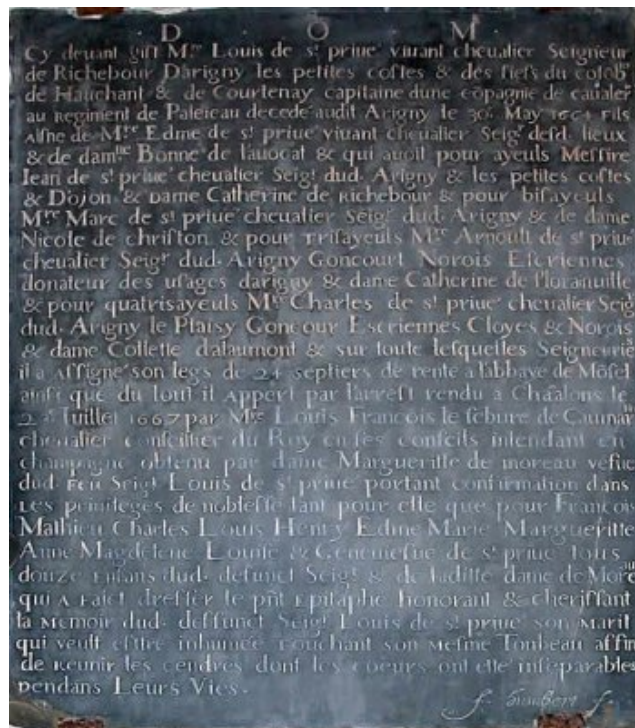 D O M
Cy deuant gist M.re Louis de st priue viuant cheualier Seigneur
de Richebour Darigny les petites costes & des fiefs du
de Hauchant & de Courtenay capitaine dune cōpagnie de caualer
au Regiment de Paleieau decedé audit Arigny le 30. May fils
Aisne de M.re Edme de st priue viuant cheualier Seig.r desd. lieux
& de dam.lle Bonne de lauocat & qui auoit pour ayeuls Messire
Iean de st priue cheualier Seig.r dud. Arigny & les petites costes
& Dojon & Dame Catherine de Richebour & pour bisayeuls
M.re Marc de st priue cheualier Seig.r dud. Arigny & de dame
Nicole de christon & pour Trisayeuls M.re Arnoult de st priue
cheualier Seig.r dud. Arigny Goncourt Norois Escriennes
donateur des usages darigny & dame Catherine de
& pour quatrisayeuls M.re Charles de st priue cheualier Seig
dud. Arigny le Plaisy Goncour Escriennes Cloyes & Norois
& dame Collette dalaumont & sur toute lesquelles Seigneurie
il a Assigné son legs de 24 septiers de rente a labbaye de
ainsi que du tout il Appert par larrest rendu a Chaalons le
Iuillet 1667 par M.re Louis François le febure de
cheualier conseillier du Roy en ses conseils intendant en
champagne obtenu par dame Margueritte de moreau vefue
dud. feu Seig.r Louis de st priue portant confirmation dans
Les priuileges de noblesse tant pour elle que pour François
Mathieu Charles Louis Henry Edme Marie Margueritte
Anne Magdelene Louise & Geneuiefue de st priue Tous
douze Enfans dud. defunct Seig.r & de laditte dame de More.au
qui A Faict dresser le pñt Epitaphe honorant & cherissant
la Memoir dud. deffunct Seig.r Louis de st priue son Marit
qui veult estre inhumée touchant son Mesme Tombeau affin
de Reunir les cendres dont les coeurs ont esté inseparables
pendans Leurs Vies.